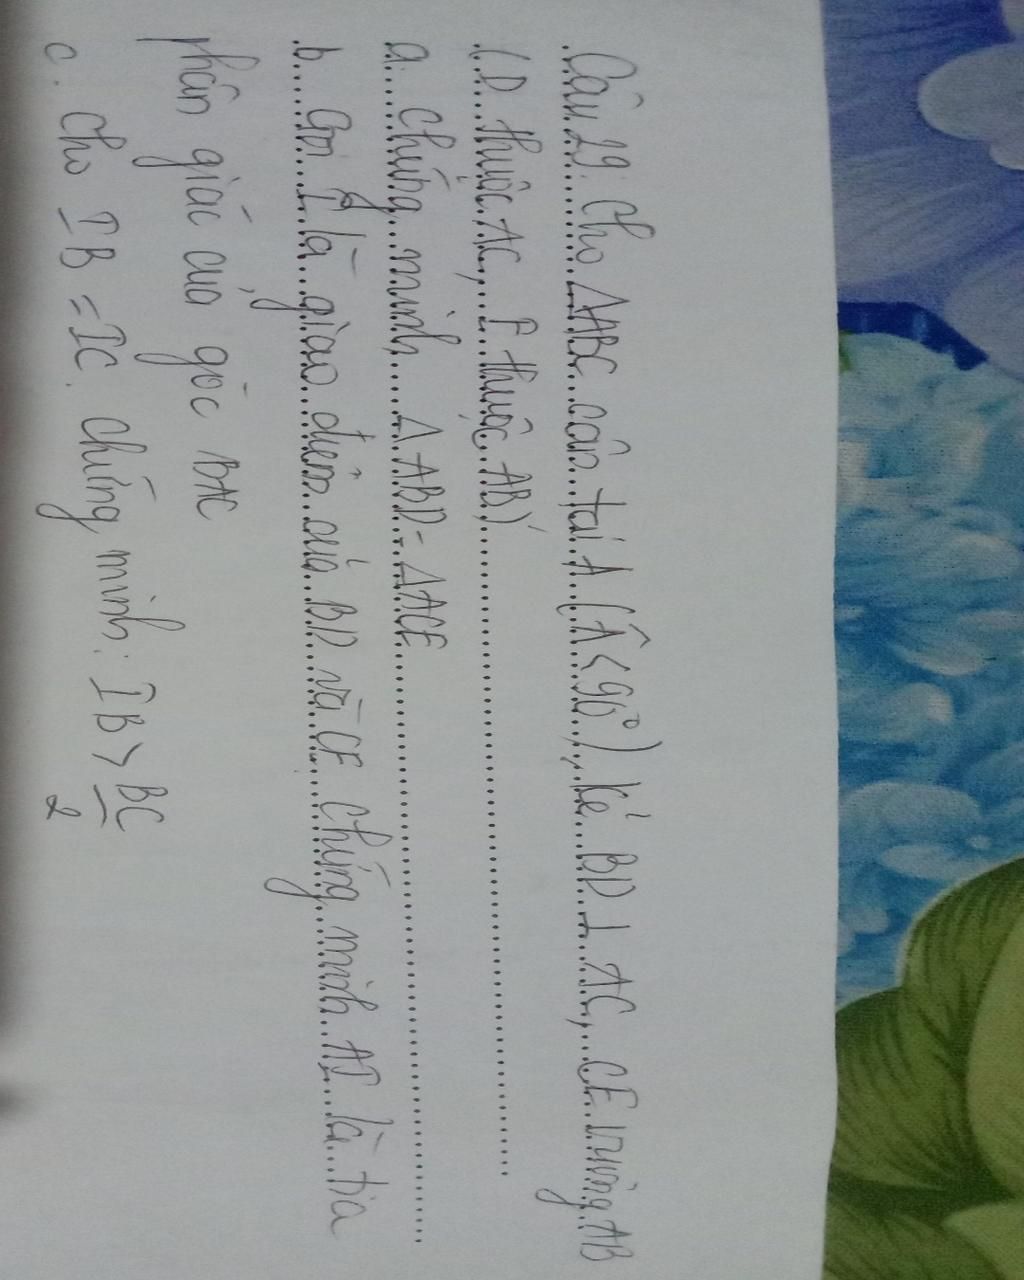 Câu 29: Cho ΔABC cân tại A (Â < 90°), kẻ BD ⊥ AC, CE vuông AB
(D thuộc AC, E thuộc AB)
a. Chứng minh ΔABD = ΔACE
b. Gọi I là giao điểm của BD và CE chứng minh AI là tia
phân giác của góc BAC
c. Cho IB = IC. Chứng minh: IB > BC/2